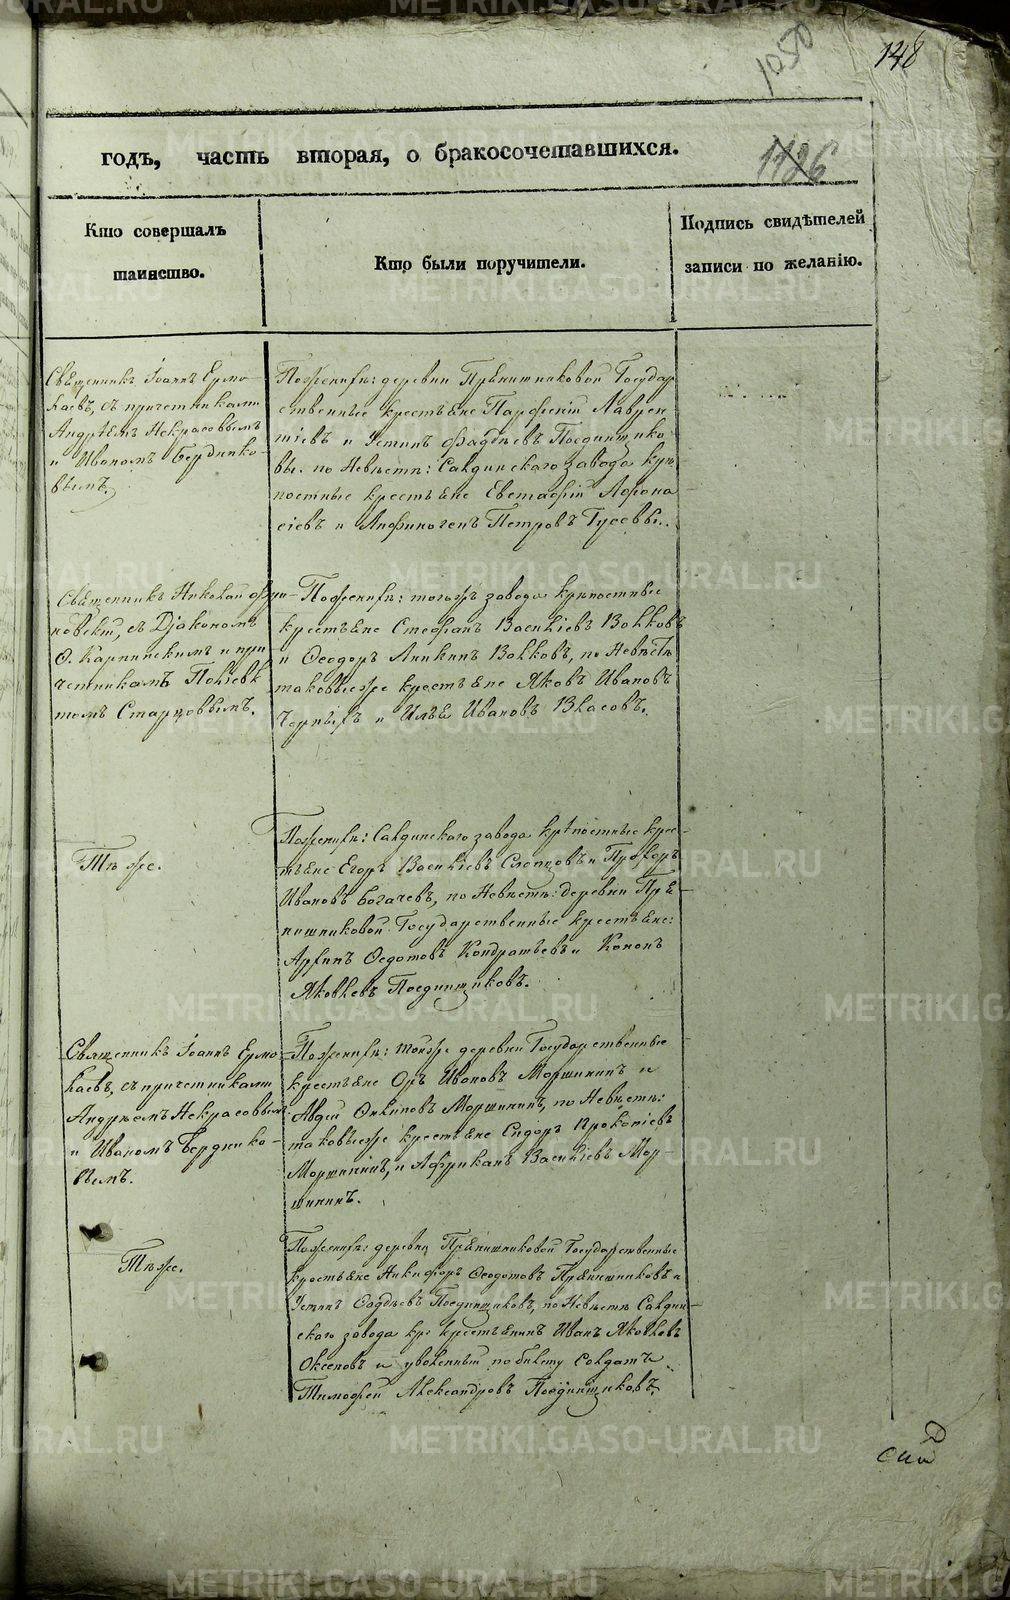 1050
148
годъ, часть вторая, о бракосочетавшихся.
1126
Кто совершалъ
таинство.
Кто были поручители.
Подпись свидѣтелей
записи по желанію.
Священникъ Іоаннъ Ермо-
лаевъ, съ причетниками
Андреемъ Некрасовымъ
и Иваномъ Бердюко-
вымъ.
По женихѣ: деревни Прянишниковой Государ
ственные крестьяне Парфений Лаврен
тіевъ и Устинъ Фадѣевъ Поединщико
вы. по Невѣстѣ: Салдинскаго завода крѣ
постные крестьяне Евстафій Афона
сіевъ и Анфиногенъ Петровъ Гусевы.
Священникъ Николай
съ Діакономъ
Ѳ. Карпинскимъ и при
четникамъ
томъ Старцовымъ.
По женихѣ: тогожъ завода крѣпостные
крестьяне Стефанъ Васильевъ Волковъ
и Ѳеодоръ Аникинъ Волковъ, по Невѣстѣ
таковыеже крестьяне Яковъ Ивановъ
Черныхъ и Илья Ивановъ Власовъ.
Тѣ же.
По женихѣ: Салдинскаго завода крѣпостные крес-
тьяне Егоръ Васильевъ Слепцовъ и Прохоръ
Ивановъ Богачевъ, по Невѣстѣ: деревни Пря-
нишниковой Государственные крестьяне:
Архипъ Ѳедотовъ Кондратьевъ и Кононъ
Яковлевъ Поединщиковъ.
Священникъ Іоаннъ Ермо-
лаевъ, съ причетниками
Андреемъ Некрасовымъ
и Иваномъ Бердюко-
вымъ.
По женихѣ: тойже деревни Государственные
крестьяне Ивановъ Моршининъ и
Авдей Моршининъ, по Невѣстѣ:
таковыеже крестьяне Сидоръ Прокопіевъ
Моршининъ, и Африканъ Васильевъ Мор-
шининъ.
Тѣ же.
По женихѣ: деревни Прянишниковой Государственные
крестьяне Никифоръ Ѳеодотовъ Прянишниковъ и
Устинъ Фадѣевъ Поединщиковъ, по Невѣстѣ Салдин-
скаго завода кре крестьянинъ Иванъ Яковлевъ
Оксеновъ и уволенный по билету Солдатъ
Тимофей Александровъ Поединщиковъ.
METRIKI.GASO-URAL.RU